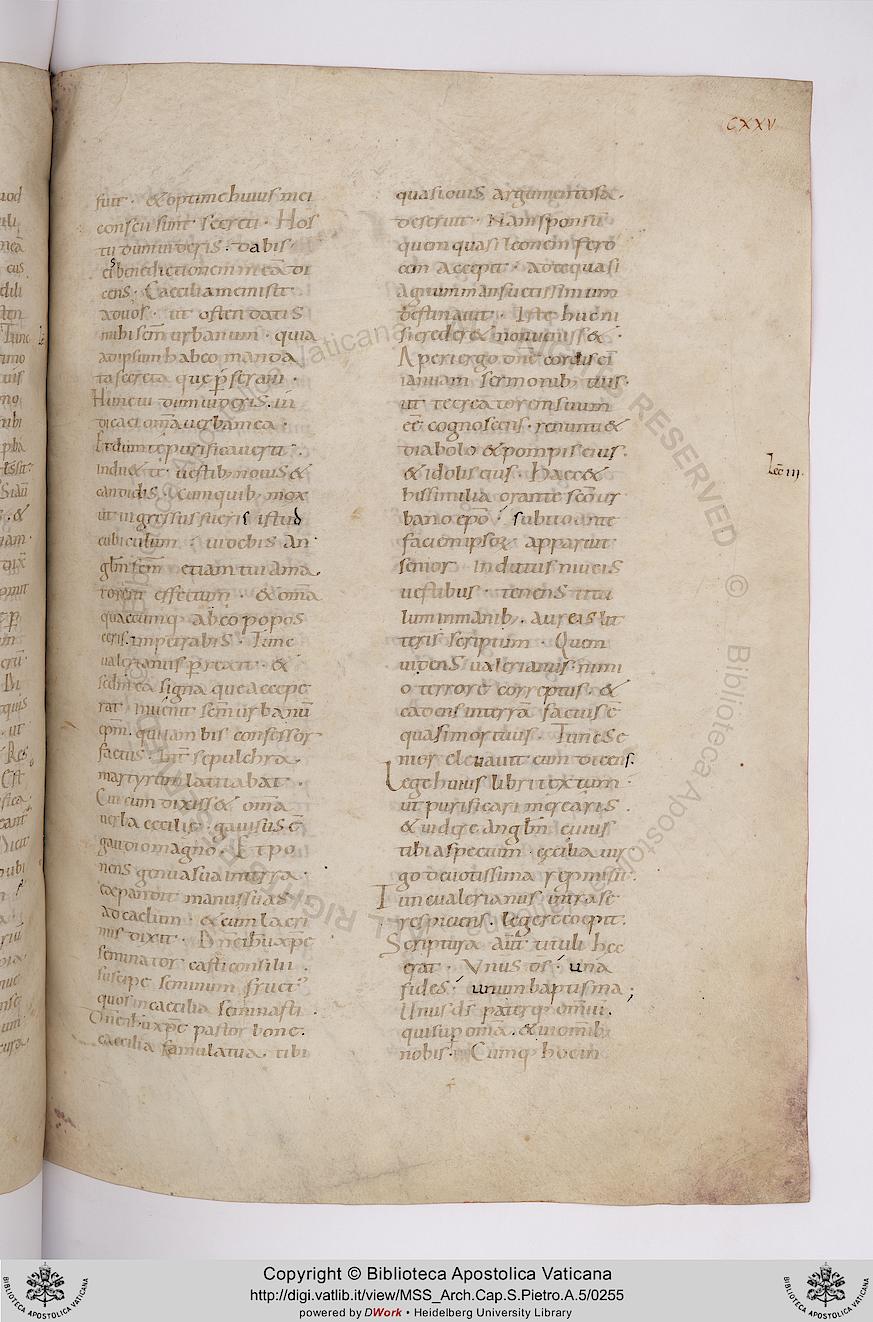 CXXV
fuit · & optime huius mei
conscii sunt secreti · Hos
tu dum uideris · dabis
eis benedictionem meā di
cens · Caecilia me misit
ad uos · ut ostendatis
mihi sc̄m urbanum · quia
ad ipsum habeo manda
ta secreta que p̄feram ·
Hunc tu dum uideris · in
dica ei om̄a uerba mea ·
Et dum te purificauerit ·
indu& te uestib; nouis &
candidis · cum quib; mox
ut ingressus fueris istud
cubiculum · uidebis an
gl̄m sc̄m etiam tui ama
torem effectum · & om̄a
quaecumq; ab eo popos
ceris · impetrabis · Tunc
ualerianus p̄rexit · &
sedm ea signa que accepe
rat inuenit sc̄m urbanū
ep̄m · qui iam bis confessor
factus · Int̄ sepulchra
martyrum latitabat ·
Cui cum dixiss& om̄a
uerba cecilie · gauisus ē
gaudio magno · Et po
nens genua sua in terra ·
expandit manus suas
ad caelum · & cum lacri
mis dixit · Dn̄e ih̄u xp̄e
seminator casti consilii ·
suscipe seminum fruct'
quos in caecilia seminasti ·
Dn̄e ih̄u xp̄e pastor bone ·
caecilia famula tua · tibi
quasi ouis argumentosa ·
deseruit · Nam sponsū
quem quasi leonem fero
cem accepit · ad te quasi
agnum mansuetissimum
destinauit · Iste huc ni
si creder& non uenisset ·
Aperi ergo dn̄e cordis eī
ianuam sermonib; tuis ·
ut te creatorem suum
eē cognoscens · renunti&
diabolo & pompis eius ·
& idolis eius · Haec &
his similia orante sc̄o ur
bano ep̄o · subito ante
faciem ipsoꝝ apparuit
senior indutus niueis
uestibus · tenens titu
lum in manib; aureis lit
teris scriptum · Quem
uidens ualerianus nimi
o terrore correptus · &
cadens in terrā factus ē
quasi mortuus · Tunc se
nior eleuauit eum dicens ·
Lege huius libri textum
ut purificari merearis ·
& uidere angl̄m cuius
tibi aspectum cecilia uir
go deuotissima repmisit ·
Tunc ualerianus intra se
respiciens · legere coepit ·
Scriptura aūt tituli hec
erat · Vnus ds̄ · una
fides · unum baptisma ;
Unus ds̄ & pater omiū ·
qui sup om̄a · & in omib;
nobis · Cumq; hoc in
Lec̄ III ·
Copyright © Biblioteca Apostolica Vaticana
http://digi.vatlib.it/view/MSS_Arch.Cap.S.Pietro.A.5/0255
powered by DWork • Heidelberg University Library